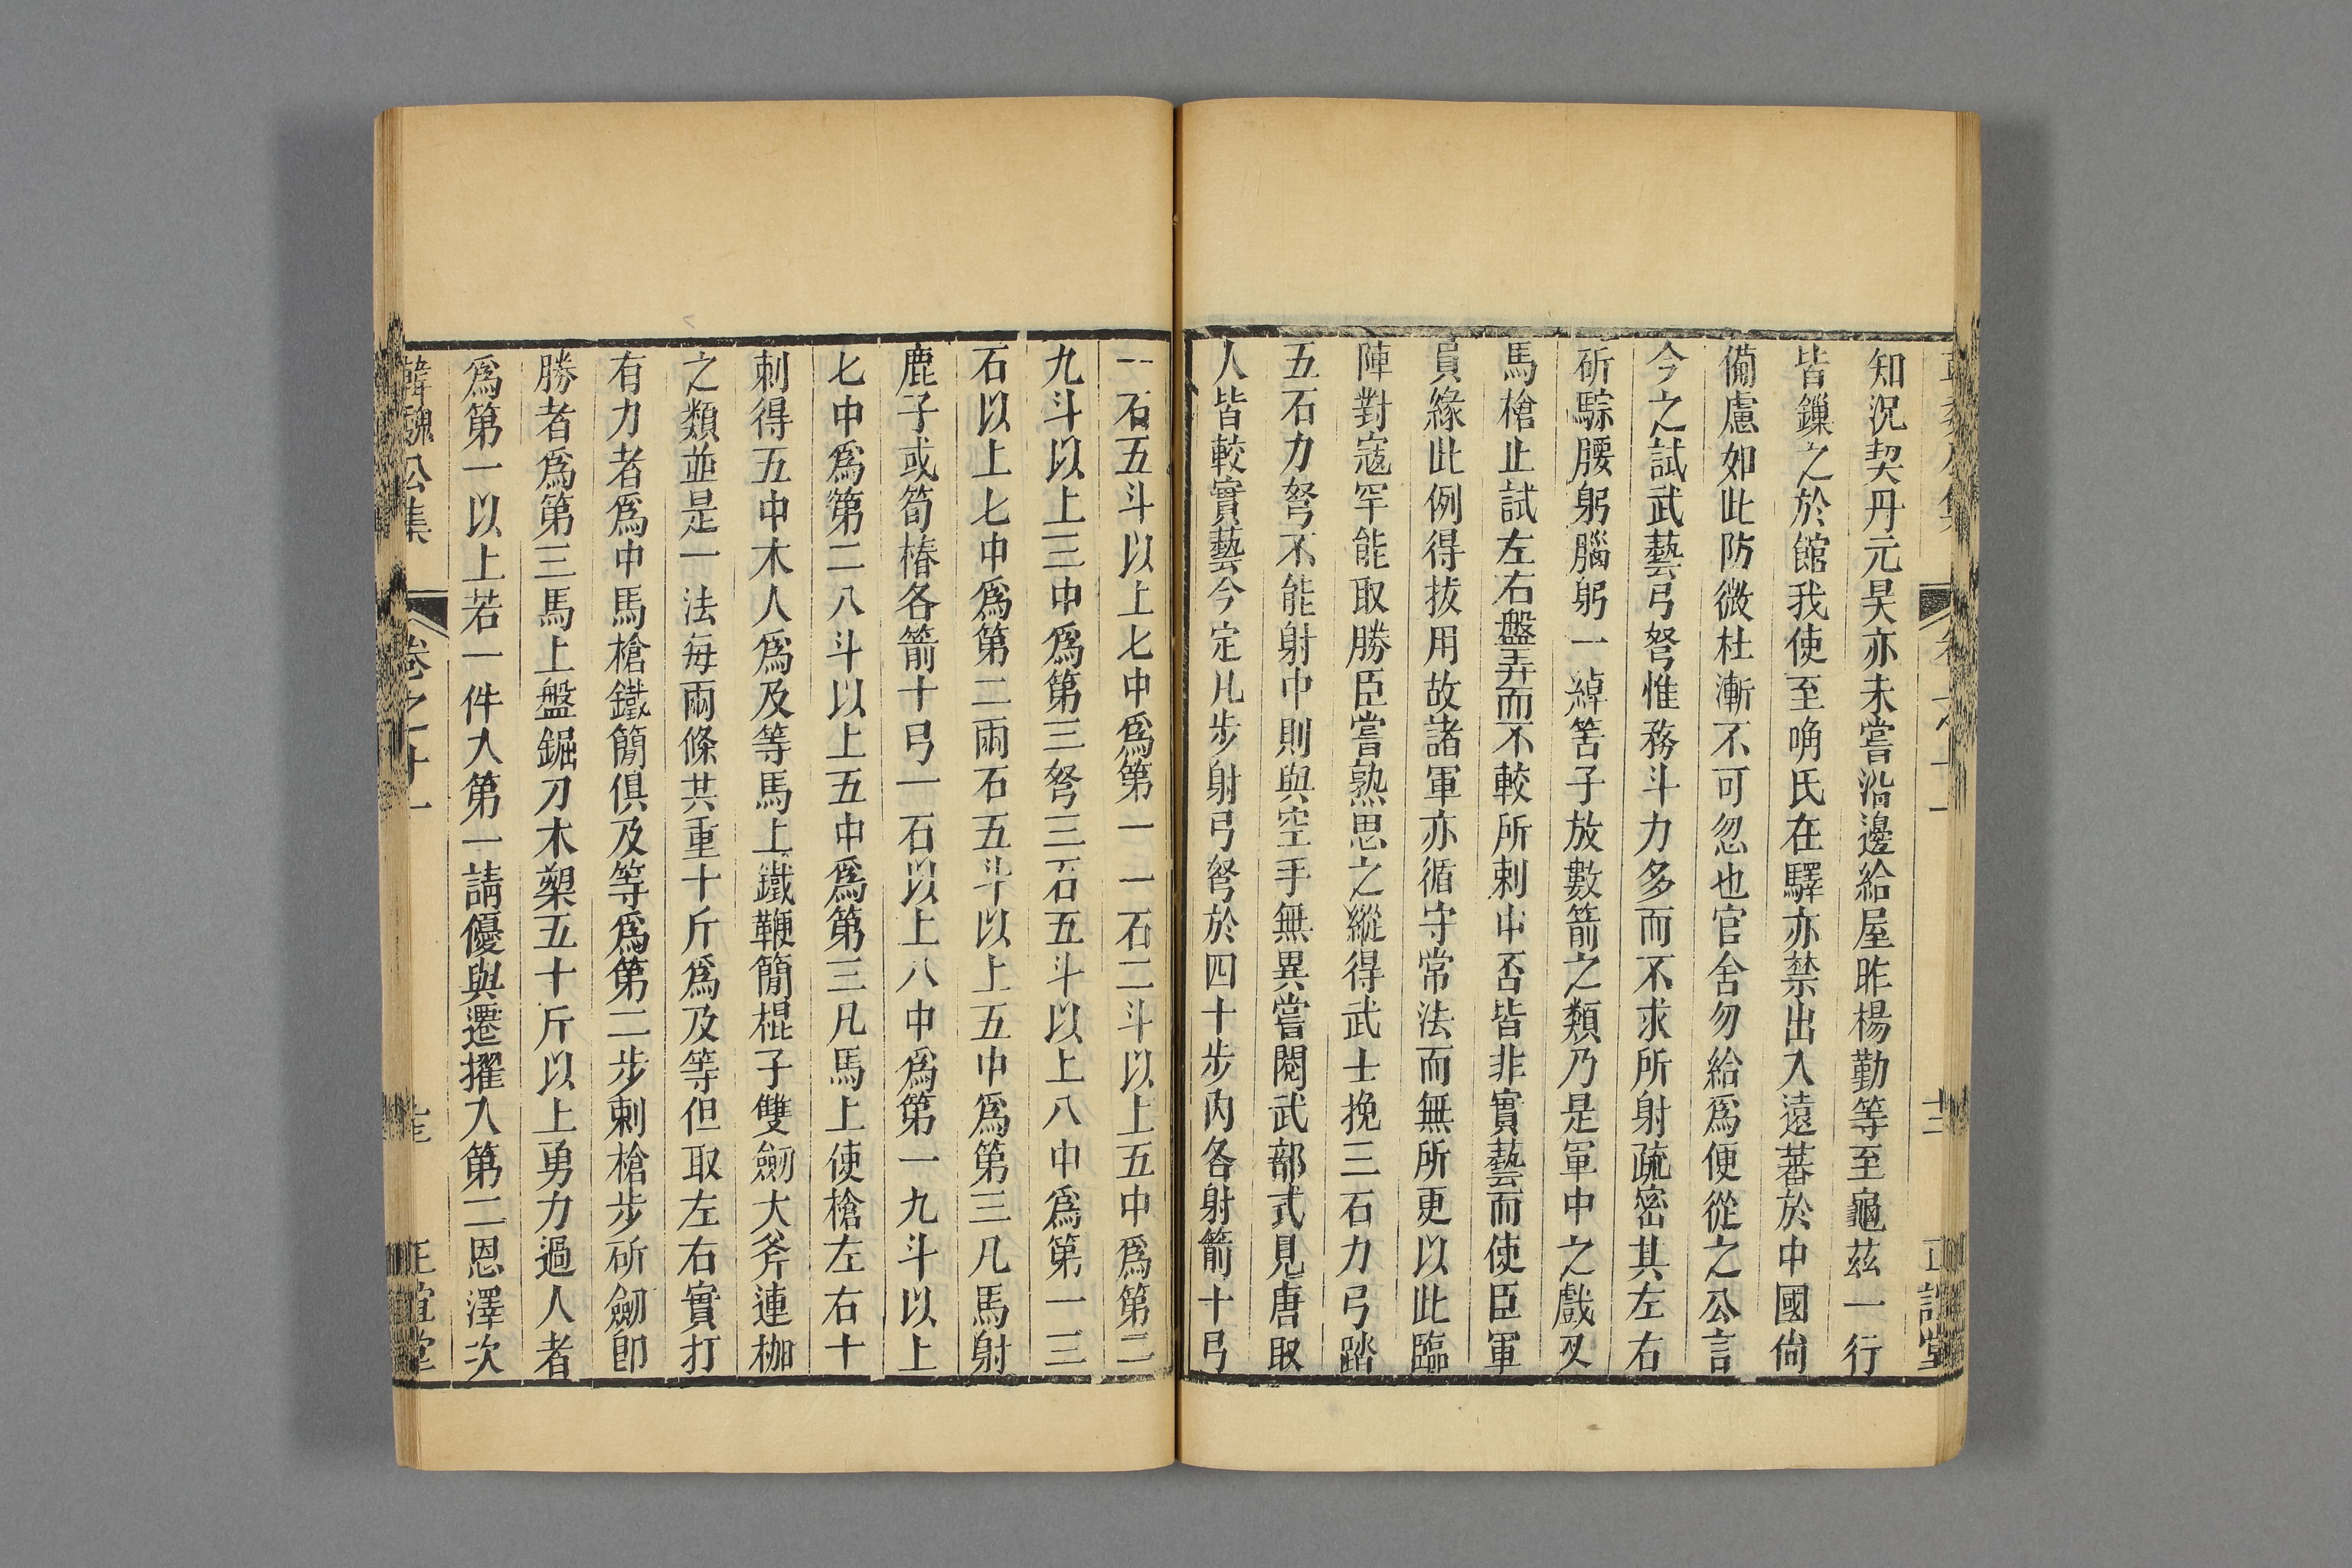 知況契丹元昊亦未嘗沿邊給屋昨楊勤等至龜茲一行
皆鏁之於館我使至唃氏在驛亦禁出入遠蕃於中國尙
備慮如此防微杜漸不可忽也官舍勿給爲便從之公言
今之試武藝弓弩惟務斗力多而不求所射疏密其左右
斫騌腰躬腦躬一綽筈子放數箭之類乃是軍中之戲又
馬槍止試左右盤弄而不較所刺中否皆非實藝而使臣軍
員緣此例得拔用故諸軍亦循守常法而無所更以此臨
陣對寇罕能取勝臣嘗熟思之縱得武士挽三石力弓踏
五石力弩不能射中則與空手無異嘗閱武部式見唐取
人皆較實藝今定凡步射弓弩於四十步內各射箭十弓
一石五斗以上七中爲第一一石二斗以上五中爲第二
九斗以上三中爲第三弩三石五斗以上八中爲第一三
石以上七中爲第二兩石五斗以上五中爲第三凡馬射
鹿子或筍椿各箭十弓一石以上八中爲第一九斗以上
七中爲第二八斗以上五中爲第三凡馬上使槍左右十
刺得五中木人爲及等馬上鐵鞭簡棍子雙劒大斧連枷
之類並是一法每兩條共重十斤爲及等但取左右實打
有力者爲中馬槍鐵簡俱及等爲第二步刺槍步斫劒卽
勝者爲第三馬上盤鋸刀木槊五十斤以上勇力過人者
爲第一以上若一件入第一請優與遷擢入第二恩澤次
韓魏公集 卷之十一